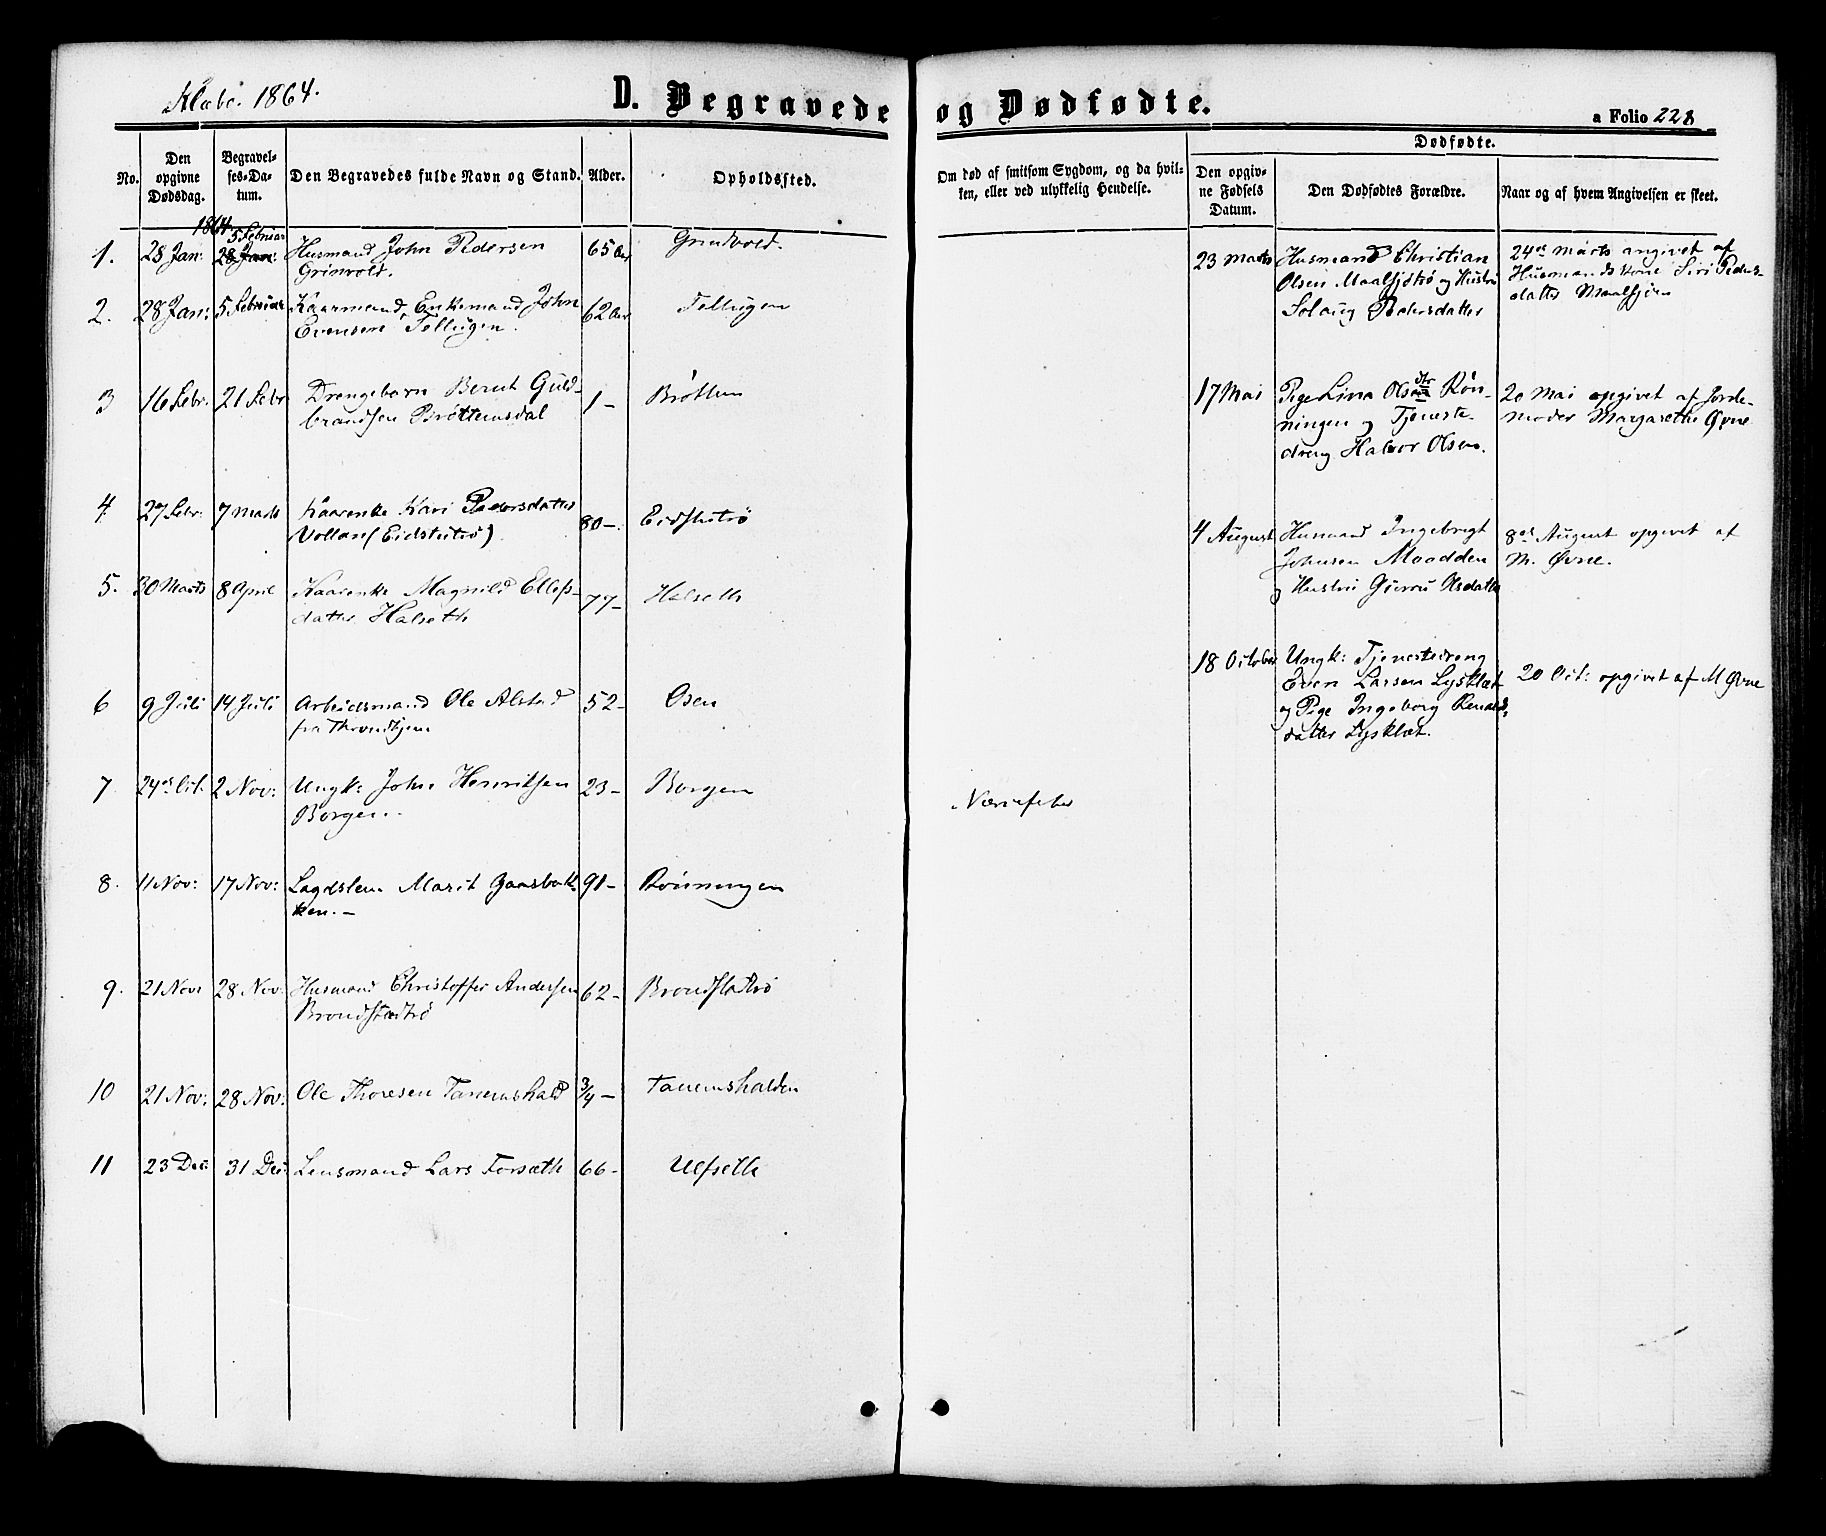 Klæbo. 1864.
D. Begravede og Dødfødte.
a Folio 228
No.
Den opgivne Dødsdag.
Begravelses-Datum.
Den Begravedes fulde Navn og Stand.
Alder.
Opholdssted.
Om død af smitsom Sygdom, og da hvilken, eller ved ulykkelig Hendelse.
Dødfødte.
Den opgivne Fødsels Datum.
Den Dødfødtes Forældre.
Naar og af hvem Angivelsen er skeet.
1864
1. 28 Jan: 28 Jan: 5 Februar Husmand John Pedersen 65 Aar
Grinvold.
2. 28 Jan: 5 Februar Kaarmand, Enkemand John 62 Aar Tellugen
Evensen Tellugen.
3 16 Febr. 21 Febr Drengebarn Bernt Guld- 1 - Bröttem
brandsen Bröttemsdal
4. 27 Febr: 7 Marts Kaarenke Kari Pedersdatter 80 -
Vollan (Eidstutrö)
5. 30 Marts 8 April Kaarenke Magnild Ellefs- 77 - Halseth
datter Halseth
6 9 Juli 14 Juli Arbeidsmand Ole Alstad 52 - Osen
fra Throndhjem
7. 24de Oct. 2 Nov: Ungk: John Henriksen 23 - Borgen Nervefeber
Borgen.
8. 11 Nov: 17 Nov: Lægdslem Marit Gaasbak- 91 - Rönningen
ken. -
9. 21 Nov: 28 Nov. Husmand Christoffer Andersen 62 -
10 21 Nov: 28 Nov: Ole Thoresen Tanemshald 3/4 - Tanemshalden
11 23 Dec: 31 Dec: Lensmand Lars Forsæth 66 - Ulfseth
23 Marts Husmand Christian
Olsen Maalsjötrö og Hustru
Solaug Pedersdatter
24de Marts angivet af
Husmandskone Siri Peders-
datter Maalsjöen
17 Mai Pige Lina Olsdtr Rön-
ningen og Tjeneste-
dreng Halvor Olsen.
20 Mai opgivet af Jorde-
moder Margarethe Øvne
4 August Husmand Ingebrigt
Johnsen Moodden
og Hustru Gurru Olsdatter
8de August opgivet af
M. Øvne.
18 October Ungk: Tjenestedreng
Even Larsen Lysklæt
og Pige Ingeborg
datter Lysklæt.
20 Oct: opgivet af M Øvne